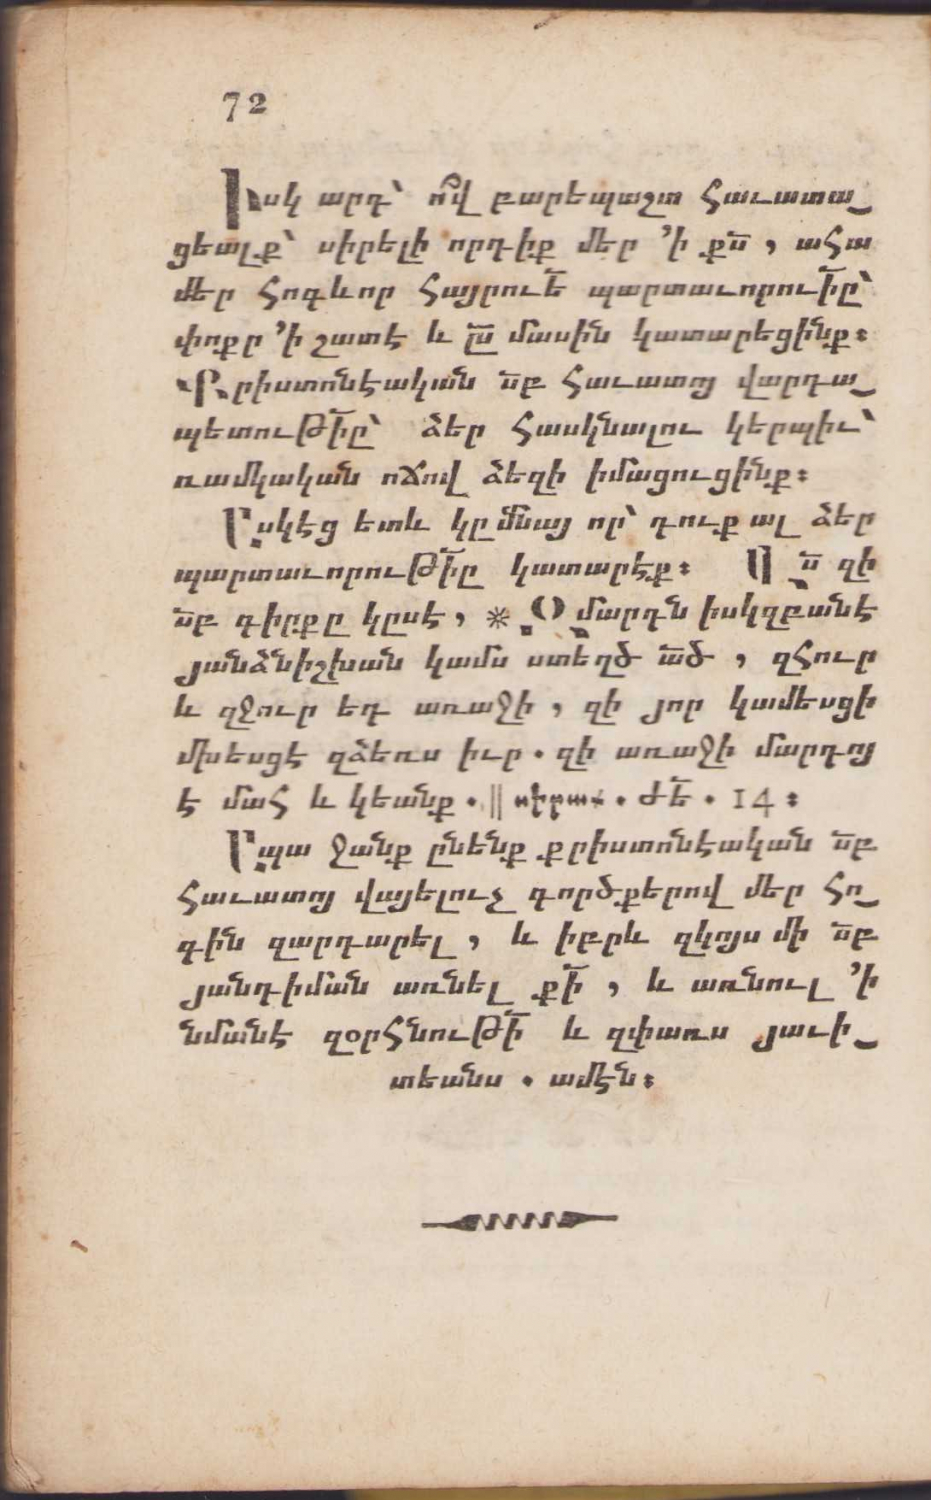 72
Իսկ արդ՝ ո՜վ բարեպաշտ հաւատա֊
ցեալք՝ սիրելի որդիք մեր ՚ի քս̅, ահա
մեր հոգևոր հայրուե̅ պարտաւորուի̅ը՝
փոքր ՚ի շատէ և յս̅ մասին կատարեցինք։
Քրիստոնէական ս̅բ հաւատոյ վարդա֊
պետութի̅ը՝ ձեր հասկնալու կերպիւ՝
ռամկական ոճով ձեզի իմացուցինք։
Ըսկէց ետև կըմ̅նայ որ՝ դուք ալ ձեր
պարտաւորութի̅ը կատարէք։ Պս̅ զի
ս̅բ գիրքը կըսէ, * Զմարդն իսկզբանէ
յանձնիշխան կամս ստեղծ ա̅ծ, զհուր
և զջուր եդ առաջի, զի յոր կամեսցի
մխեսցէ զձեռս իւր. զի առաջի մարդոյ
է մահ և կեանք.|| սիրաք. ժե̅. 14։
Ըպա ջանք ընենք քրիստոնէական ս̅բ
հաւատոյ վայելուչ գործքերով մեր հո֊
գին զարդարել, և իբրև զկոյս մի ս̅բ
յանդիման առնել քի̅, և առնուլ ՚ի
նմանէ զօրհնութի̅ և զփառս յաւի֊
տեանս. ամէն։